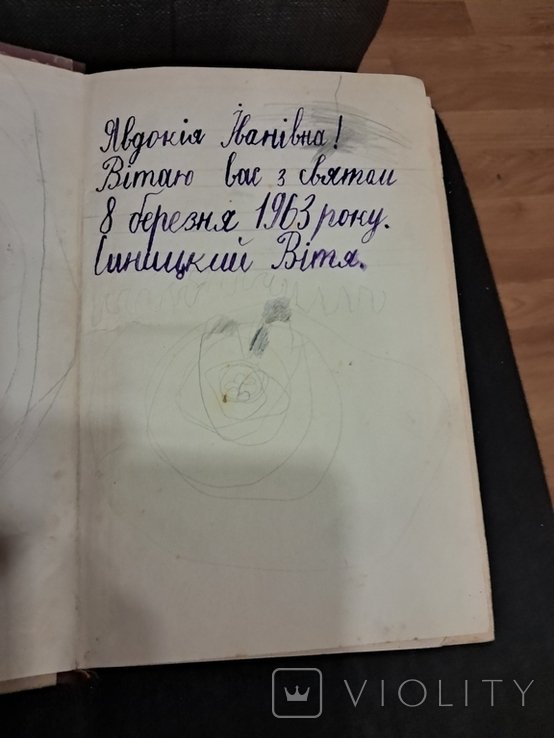 Явдокія Іванівна!
Вітаю вас з святом
8 березня 1963 року.
Синицкий Вітя.
VIOLITY